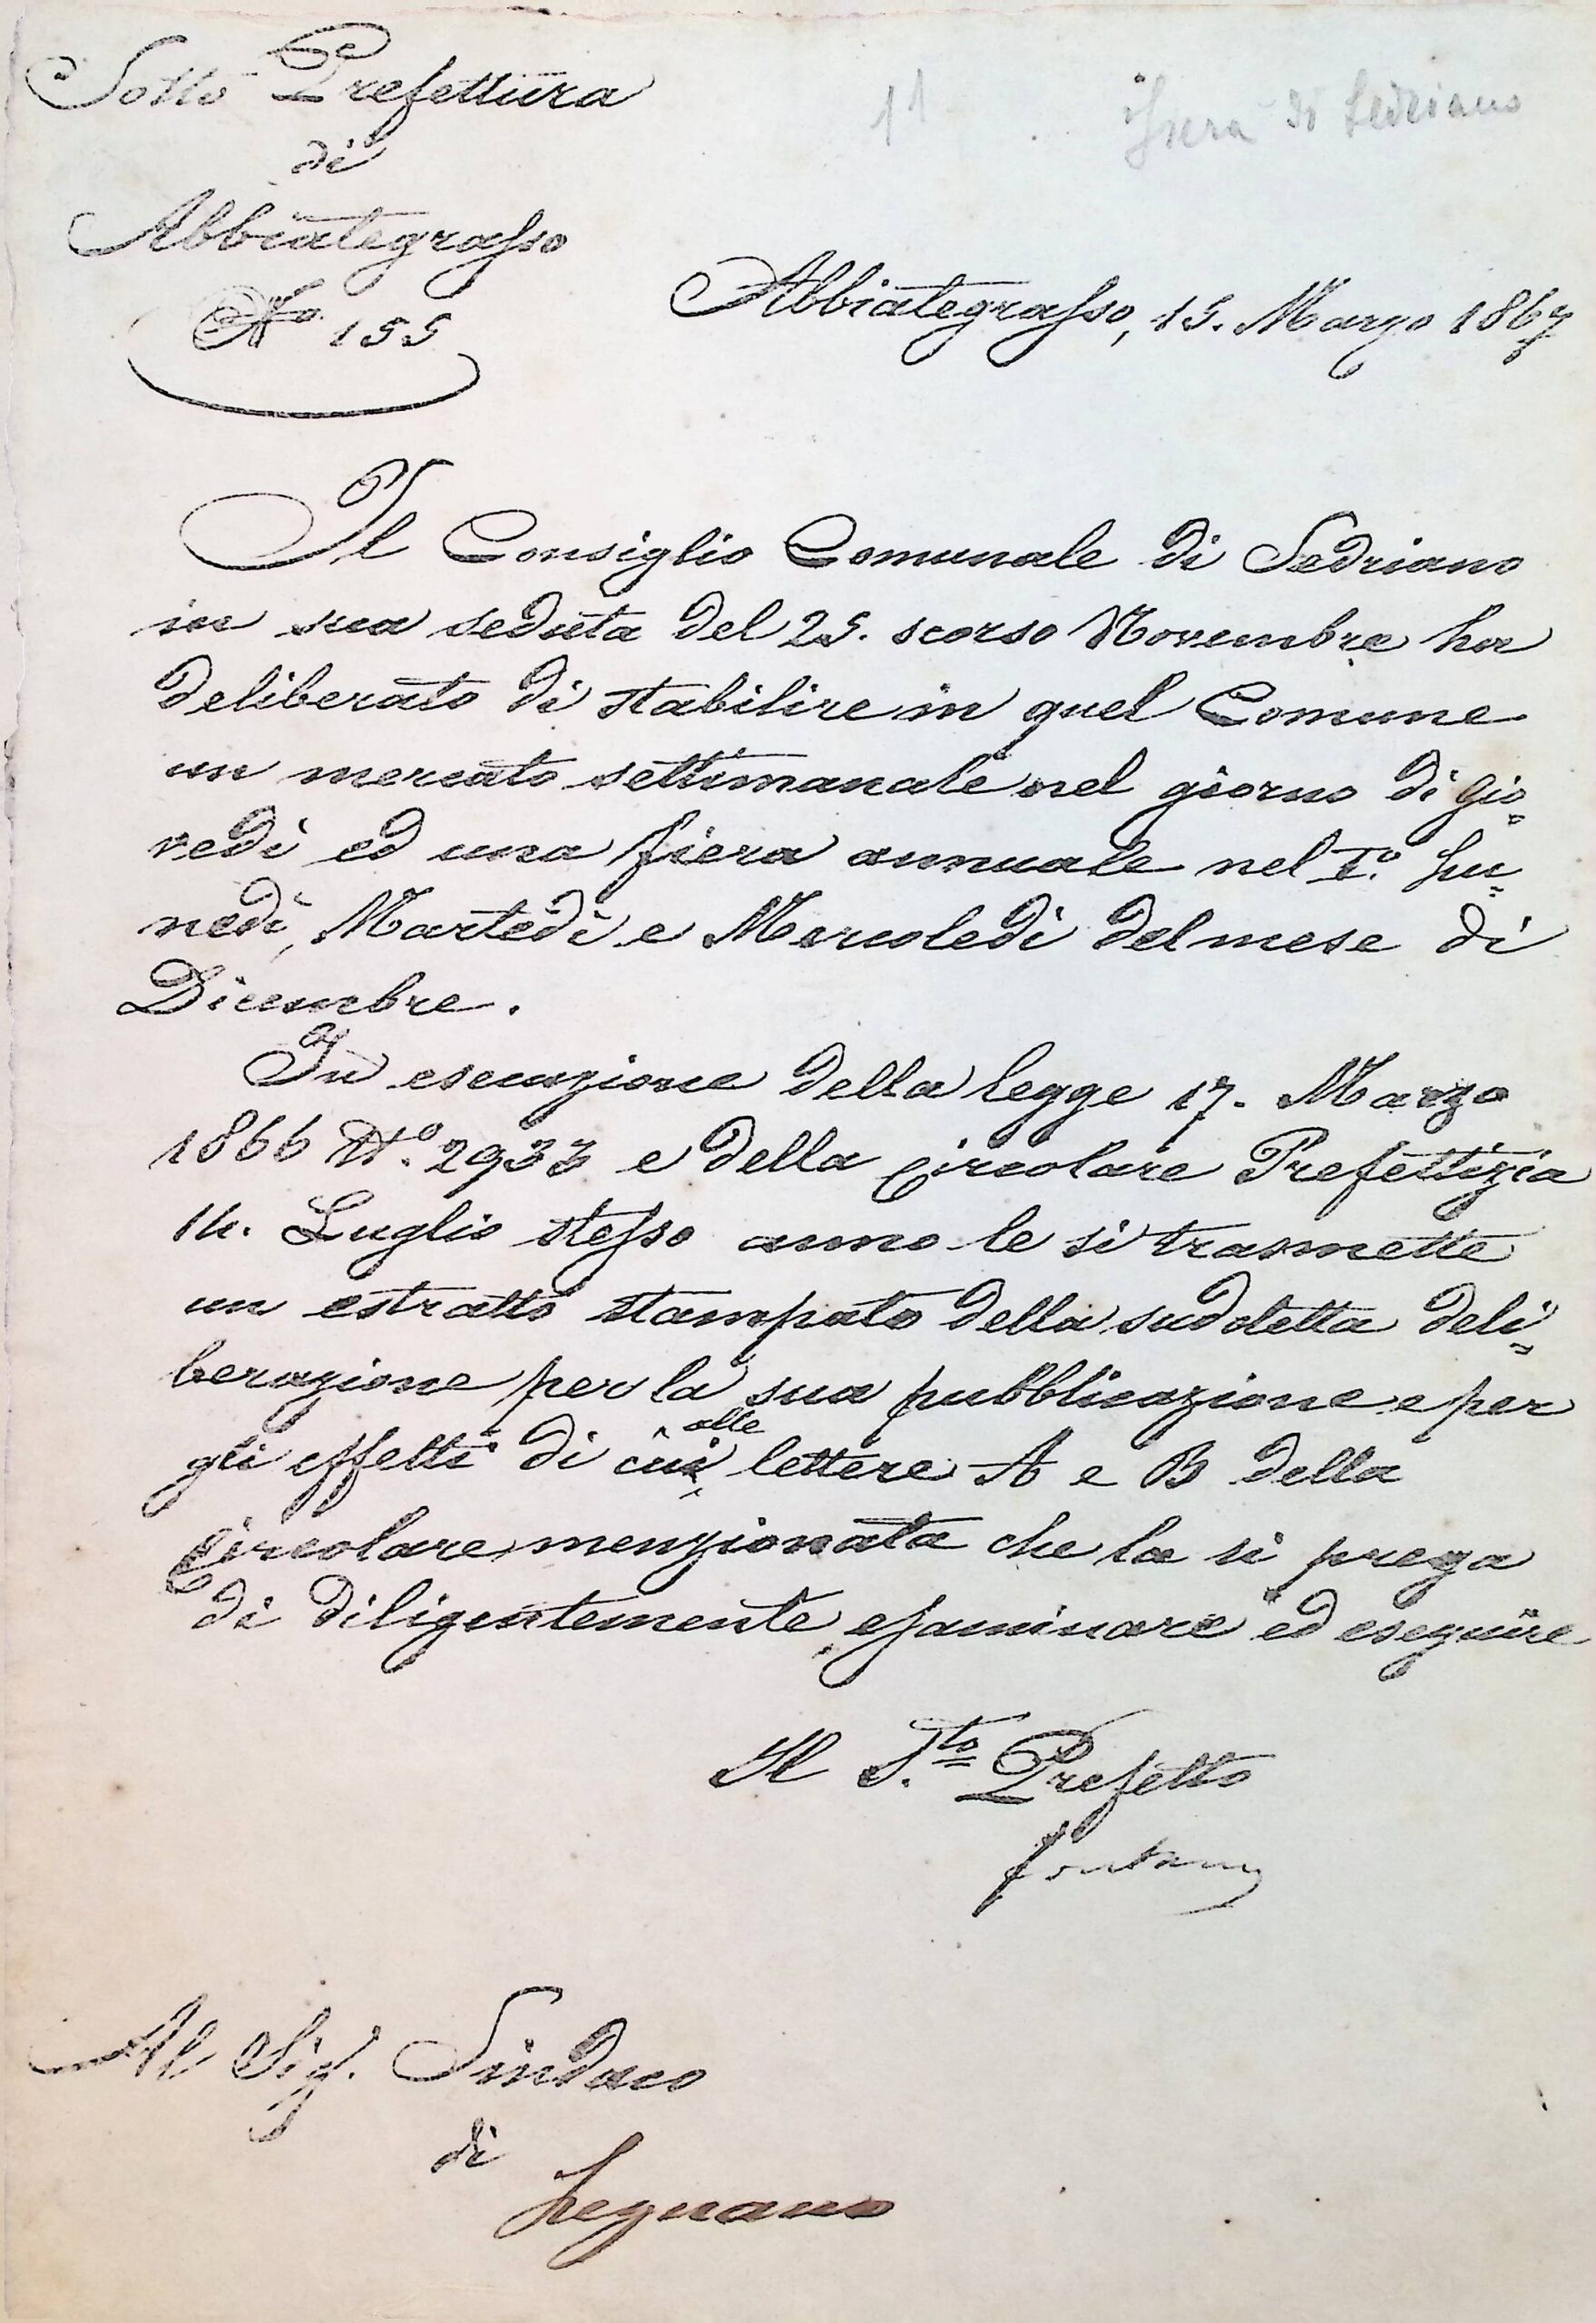 Sotto Prefettura
di
Abbiategrasso
N° 155
11
fiera di Sedriano
Abbiategrasso, 15. Marzo 1867
Il Consiglio Comunale di Sedriano
in sua seduta del 25. scorso Novembre ha
deliberato di stabilire in quel Comune
un mercato settimanale nel giorno di Gio=
vedì ed una fiera annuale nel I.° Lu=
nedì, Martedì e Mercoledì del mese di
Dicembre.
In esecuzione della legge 17. Marzo
1866 N.° 2933 e della Circolare Prefettizia
14. Luglio stesso anno le si trasmette
un estratto stampato della suddetta deli=
berazione per la sua pubblicazione e per
gli effetti di cui alle lettere A e B della
Circolare menzionata che la si prega
di diligentemente esaminare ed eseguire
Il S.to Prefetto
Al Sig. Sindaco
di
Legnano